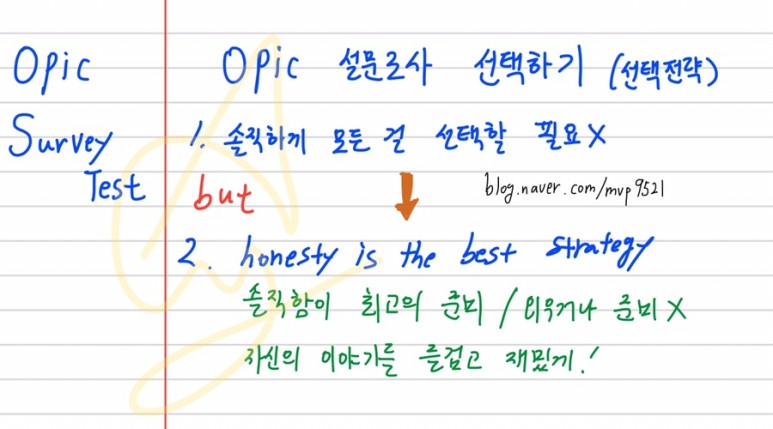 Opic
Survey
Test
Opic 설문조사 선택하기 (선택전략)
1. 솔직하게 모든 걸 선택할 필요X
but
blog.naver.com/mvp9521
2. honesty is the best strategy
솔직함이 최고의 준비 / 외우거나 준비X
자신의 이야기를 즐겁고 재밌게!